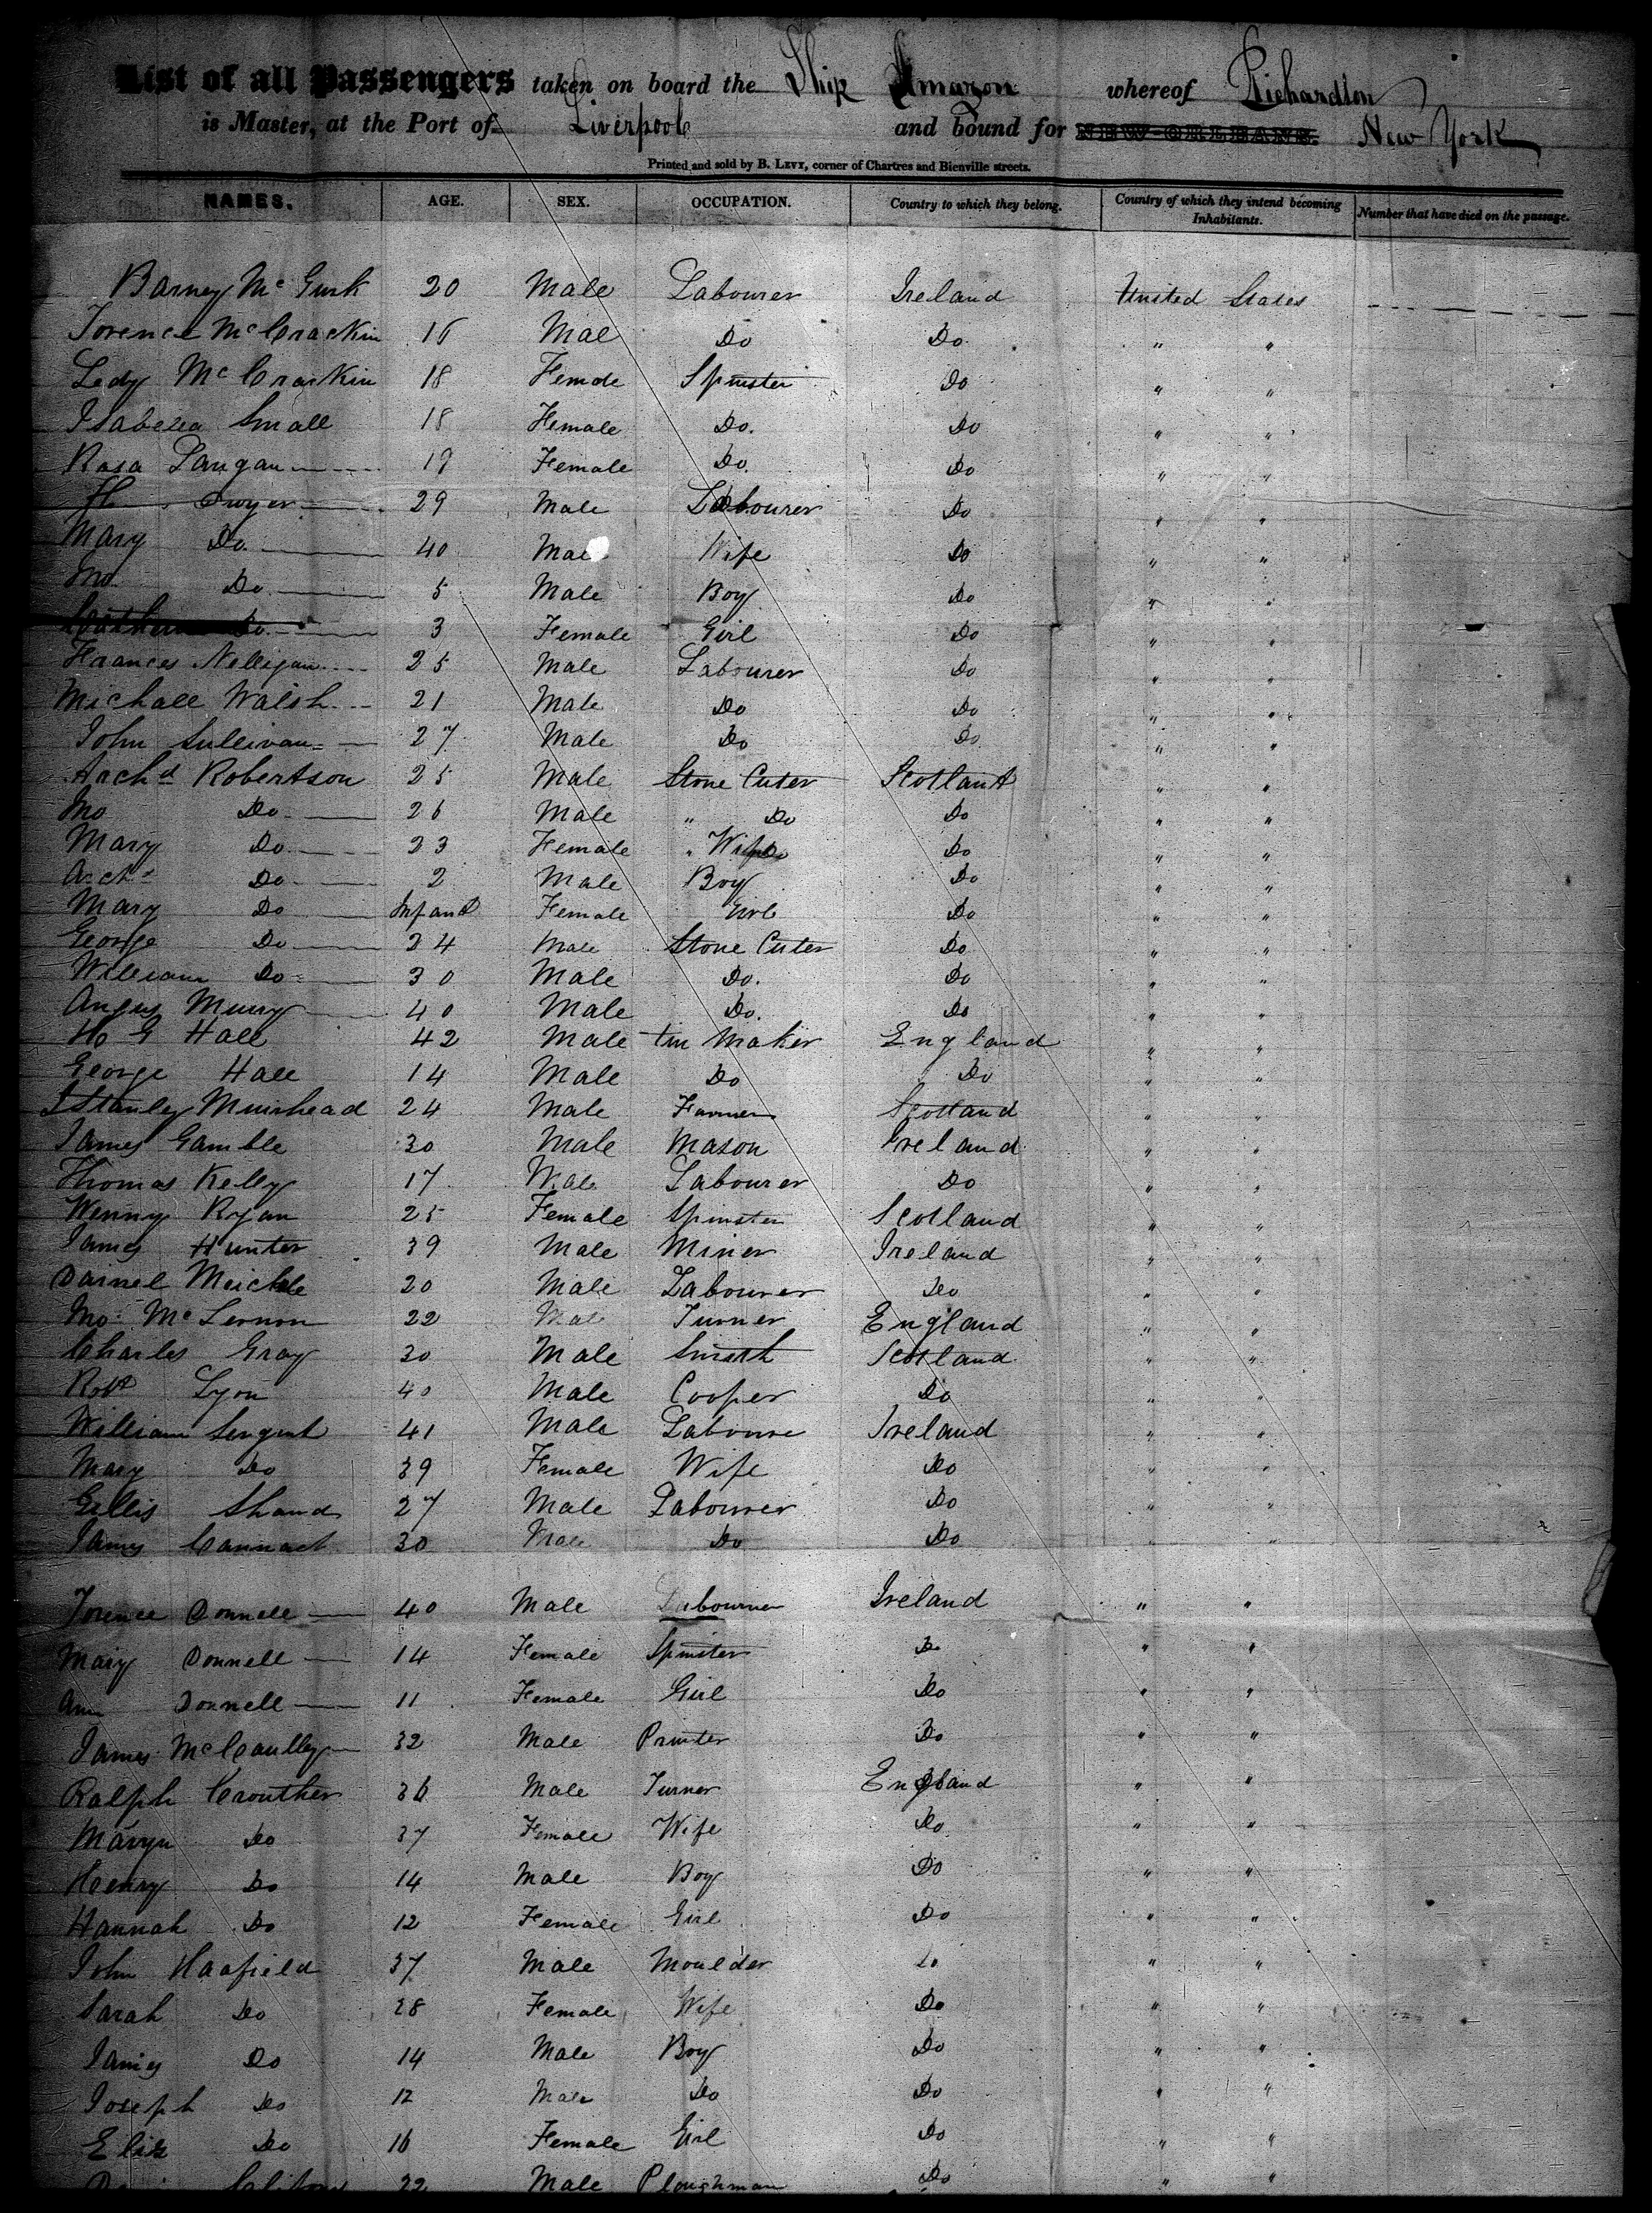 List of all Passengers taken on board the Ship Amazon whereof Richardson
is Master, at the Port of Liverpool and bound for NEW-ORLEANS. New York
Printed and sold by B. LEVY, corner of Chartres and Bienville streets.
NAMES. AGE. SEX. OCCUPATION. Country to which they belong. Country of which they intend becoming Inhabitants. Number that have died on the passage.
Barney Mc Gurk 20 Male Labourer Ireland United States
Torence McCrackin 16 Mal Do Do. " "
Ledy McCrackin 18 Female Spinster Do " "
Isabella Small 18 Female Do. Do " "
Rosa Langan 19 Female Do. Do " "
Dwyer 29 Male Labourer Do " "
Mary Do. 40 Male Wife Do " "
Jno. Do. 5 Male Boy Do " "
Do. 3 Female Girl Do " "
Frances Nelligan 25 Male Labourer Do " "
Michall Walsh 21 Male Do Do " "
John Sullivan 27 Male Do Do. " "
Archd Robertson 25 Male Stone Cuter Scotland " "
Jno Do. 26 Male " Do Do " "
Mary Do. 23 Female " Wife Do " "
Archd Do. 2 Male Boy Do " "
Mary Do Infant Female Girl Do " "
George Do 24 Male Stone Cuter Do " "
William Do 30 Male Do. Do " "
Angus Murry 40 Male Do. Do " "
H G Hall 42 Male tin Maker England " "
George Hall 14 Male Do Do " "
Stanley Muirhead 24 Male Farmer Scotland " "
James Gamble 30 Male Mason Ireland " "
Thomas Kelly 17 Male Labourer Do " "
Winny Ryan 25 Female Spinster Scotland " "
James Hunter 39 Male Miner Ireland " "
Dainel Meickle 20 Male Labourer Do " "
Jno. McLernon 22 Male Turner England " "
Charles Gray 30 Male Smith Scotland " "
Robt Lyon 40 Male Cooper Do " "
William Sergent 41 Male Laboure Ireland " "
Mary Do 39 Female Wife Do " "
Gillis Shand 27 Male Labourer Do " "
James Cannact 30 Male Do Do " "
Torence Donnell 40 Male Labourer Ireland " "
Mary Donnell 14 Female Spinster Do " "
Ann Donnell 11 Female Girl Do " "
James McCaulley 32 Male Printer Do " "
Ralph Crouther 36 Male Turner England " "
Do 37 Female Wife Do " "
Henry Do 14 Male Boy Do " "
Hannah Do 12 Female Girl Do " "
John Haafield 37 Male Moulder Do " "
Sarah Do 28 Female Wife Do " "
James Do 14 Male Boy Do " "
Joseph Do 12 Male Do Do " "
Eliz Do 16 Female Girl Do " "
22 Male Ploughman Do " "